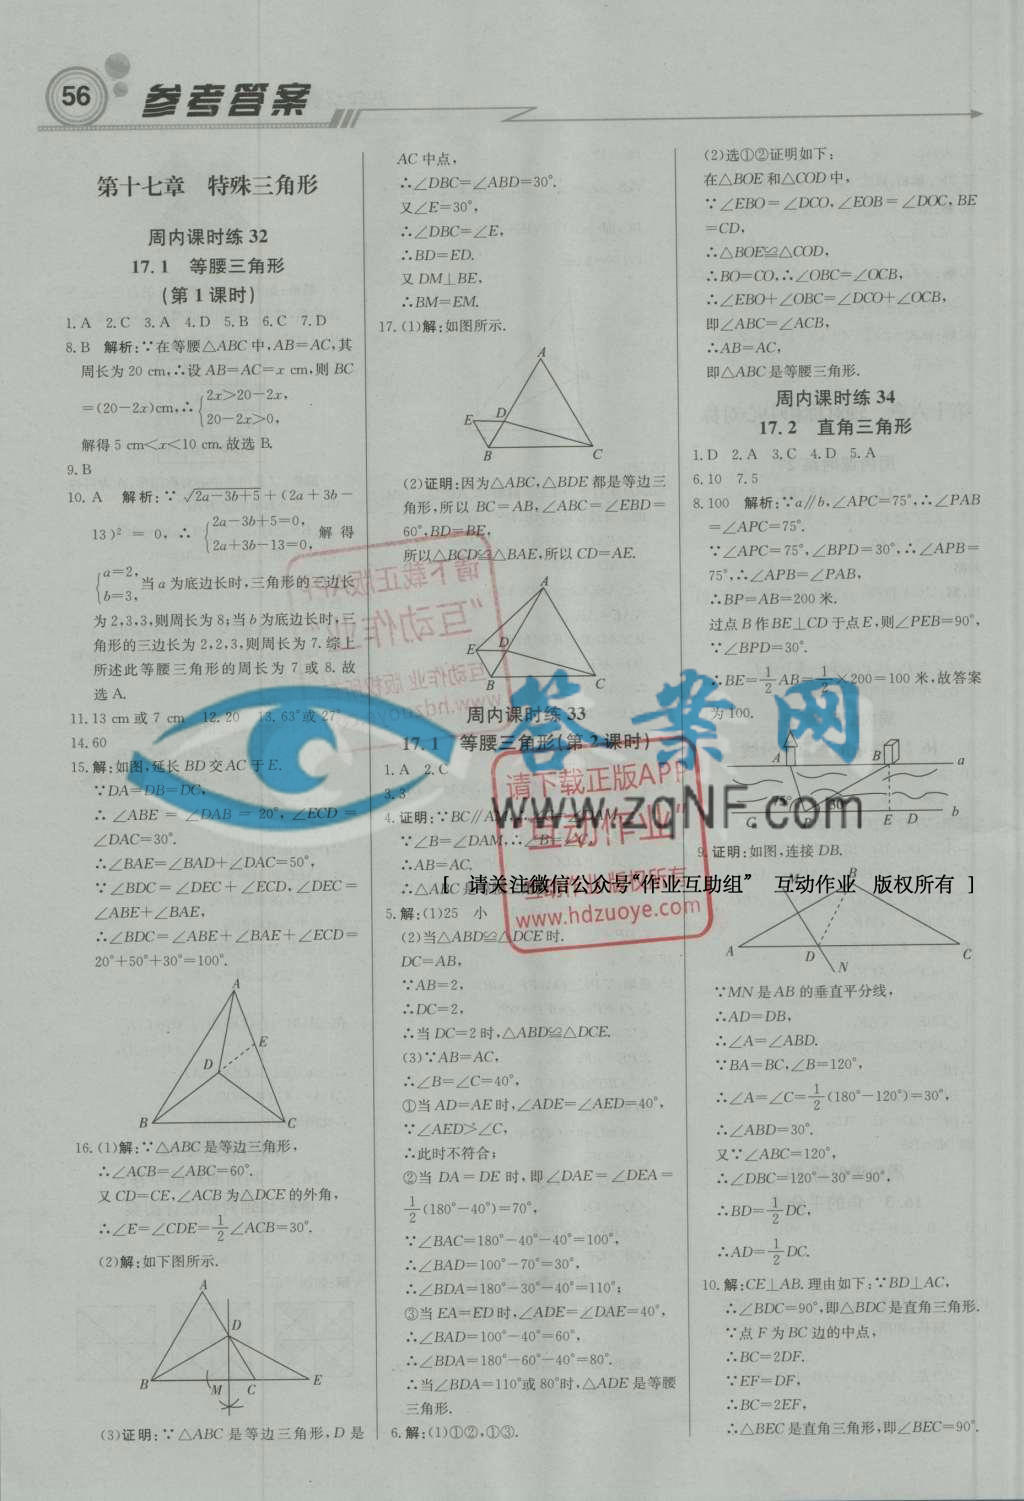 56
参考答案
第十七章 特殊三角形
周内课时练 32
17.1 等腰三角形
(第 1 课时)
1. A 2. C 3. A 4. D 5. B 6. C 7. D
8. B 解析:∵在等腰△ABC中,AB=AC,其
周长为20 cm,∴设AB=AC=x cm,则BC
=(20-2x)cm,∴{2x>20-2x,
20-2x>0,
解得5 cm<x<10 cm.故选B.
9. B
10. A 解析:∵√2a-3b+5+(2a+3b-
13)²=0,∴{2a-3b+5=0, 解得
2a+3b-13=0,
{a=2, 当a为底边长时,三角形的三边长
b=3,
为2,3,3,则周长为8;当b为底边长时,三
角形的三边长为2,2,3,则周长为7.综上
所述此等腰三角形的周长为7或8.故
选A.
11. 13 cm或7 cm 12. 20 13. 63°或27°
14. 60
15. 解:如图,延长BD交AC于E.
∵DA=DB=DC,
∴∠ABE=∠DAB=20°,∠ECD=
∠DAC=30°.
∴∠BAE=∠BAD+∠DAC=50°,
∵∠BDC=∠DEC+∠ECD,∠DEC=
∠ABE+∠BAE,
∴∠BDC=∠ABE+∠BAE+∠ECD=
20°+50°+30°=100°.
A
E
D
B
C
16. (1)解:∵△ABC是等边三角形,
∴∠ACB=∠ABC=60°.
又CD=CE,∠ACB为△DCE的外角,
∴∠E=∠CDE=1/2∠ACB=30°.
(2)解:如下图所示.
A
D
B M C E
(3)证明:∵△ABC是等边三角形,D是
AC中点,
∴∠DBC=∠ABD=30°.
又∠E=30°,
∴∠DBC=∠E,
∴BD=ED.
又DM⊥BE,
∴BM=EM.
17. (1)解:如图所示.
A
E D
B C
(2)证明:因为△ABC,△BDE都是等边三
角形,所以BC=AB,∠ABC=∠EBD=
60°,BD=BE,
所以△BCD≌△BAE,所以CD=AE.
A
E D
B C
周内课时练 33
17.1 等腰三角形(第 2 课时)
1. A 2. C
3. 3
4. 证明:∵BC∥A
∵∠B=∠DAM,∴∠B=∠C,
∴AB=AC.
5. 解:(1)25 小
(2)当△ABD≌△DCE时.
DC=AB,
∵AB=2,
∴DC=2,
∴当DC=2时,△ABD≌△DCE.
(3)∵AB=AC,
∴∠B=∠C=40°,
①当AD=AE时,∠ADE=∠AED=40°,
∵∠AED>∠C,
∴此时不符合;
②当DA=DE时,即∠DAE=∠DEA=
1/2(180°-40°)=70°,
∵∠BAC=180°-40°-40°=100°,
∴∠BAD=100°-70°=30°,
∴∠BDA=180°-30°-40°=110°;
③当EA=ED时,∠ADE=∠DAE=40°,
∴∠BAD=100°-40°=60°,
∴∠BDA=180°-60°-40°=80°.
∴当∠BDA=110°或80°时,△ADE是等腰
三角形.
6. 解:(1)①②,①③.
(2)选①②证明如下:
在△BOE和△COD中,
∵∠EBO=∠DCO,∠EOB=∠DOC,BE
=CD,
∴△BOE≌△COD,
∴BO=CO,∴∠OBC=∠OCB,
∴∠EBO+∠OBC=∠DCO+∠OCB,
即∠ABC=∠ACB,
∴AB=AC,
即△ABC是等腰三角形.
周内课时练 34
17.2 直角三角形
1. D 2. A 3. C 4. D 5. A
6. 10 7. 5
8. 100 解析:∵a∥b,∠APC=75°,∴∠PAB
=∠APC=75°.
∵∠APC=75°,∠BPD=30°,∴∠APB=
75°,∴∠APB=∠PAB,
∴BP=AB=200米.
过点B作BE⊥CD于点E,则∠PEB=90°,
∵∠BPD=30°.
∴BE=1/2AB=1/2×200=100米,故答案
为100.
A B a
C E D b
9. 证明:如图,连接DB.
M B
A D C
N
∵MN是AB的垂直平分线,
∴AD=DB,
∴∠A=∠ABD.
∵BA=BC,∠B=120°,
∴∠A=∠C=1/2(180°-120°)=30°,
∴∠ABD=30°.
又∵∠ABC=120°,
∴∠DBC=120°-30°=90°.
∴BD=1/2DC,
∴AD=1/2DC.
10. 解:CE⊥AB.理由如下:∵BD⊥AC,
∴∠BDC=90°,即△BDC是直角三角形.
∵点F为BC边的中点,
∴BC=2DF.
∵EF=DF,
∴BC=2EF,
∴△BEC是直角三角形,即∠BEC=90°.
答案网
www.zqNF.com
请下载正版APP
"互动作业"
互动作业 版权所有
www.hdzuoye.com
[ 请关注微信公众号“作业互助组” 互动作业 版权所有 ]